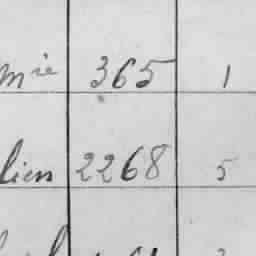 mie 365 1
lien 2268 5